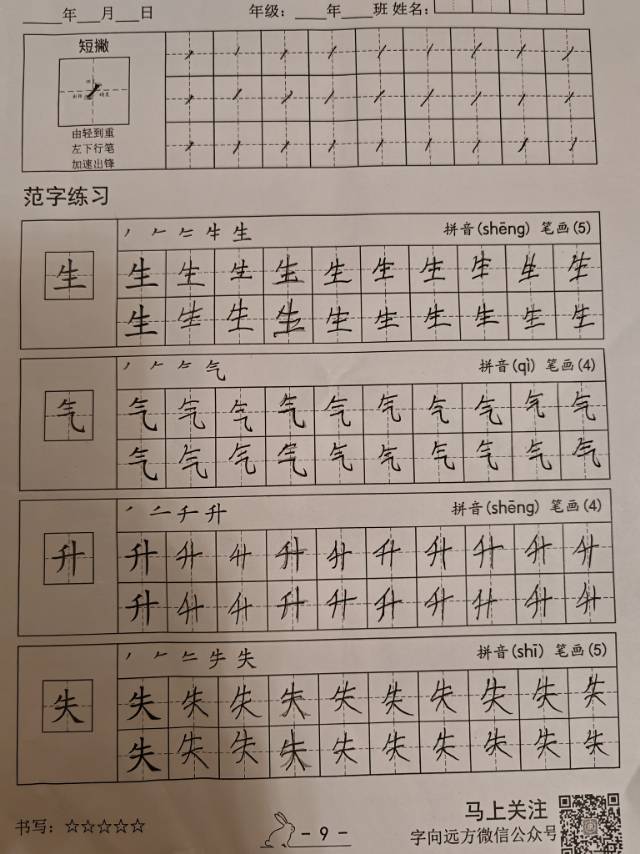 ____年____月____日 年级：____年____班 姓名：
短撇
由轻到重
左下行笔
加速出锋
范字练习
拼音(shēng) 笔画(5)
生 生 生 生 生 生 生 生 生 生 生
生 生 生 生 生 生 生 生 生 生
拼音(qì) 笔画(4)
气 气 气 气 气 气 气 气 气 气 气
气 气 气 气 气 气 气 气 气 气
拼音(shēng) 笔画(4)
升 升 升 升 升 升 升 升 升 升 升
升 升 升 升 升 升 升 升 升 升
拼音(shī) 笔画(5)
失 失 失 失 失 失 失 失 失 失 失
失 失 失 失 失 失 失 失 失 失
马上关注
书写：☆☆☆☆☆ - 9 - 字向远方微信公众号